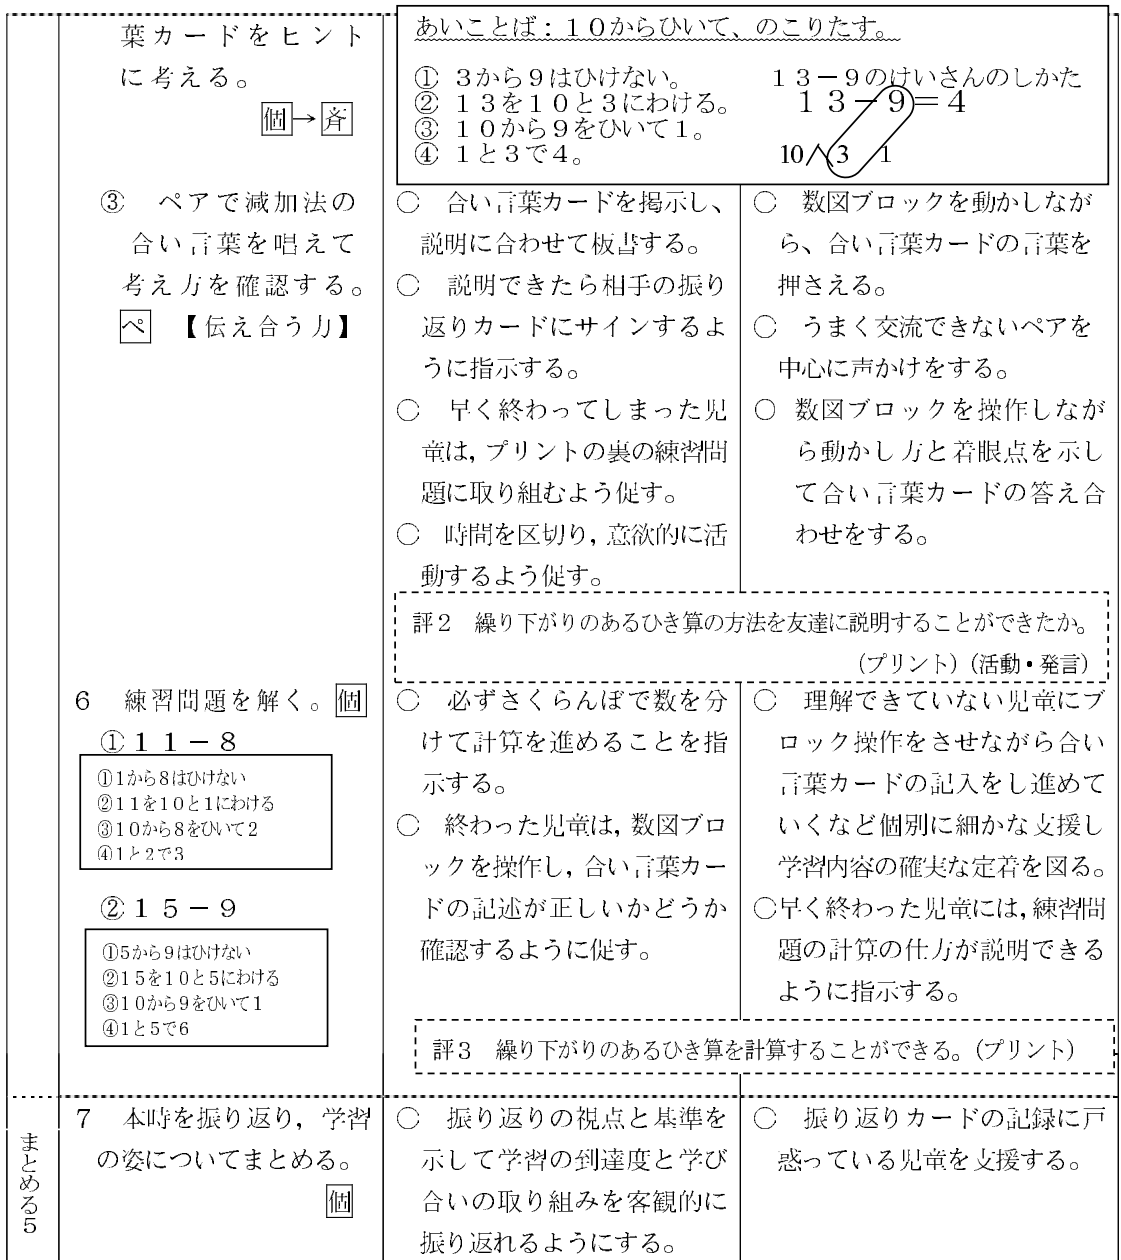 葉カードをヒント
に考える。
個→斉
あいことば：１０からひいて、のこりたす。
① ３から９はひけない。
② １３を１０と３にわける。
③ １０から９をひいて１。
④ １と３で４。
１３－９のけいさんのしかた
１３－９＝４
10 3 1
③ ペアで減加法の
合い言葉を唱えて
考え方を確認する。
ペ 【伝え合う力】
○ 合い言葉カードを掲示し、
説明に合わせて板書する。
○ 説明できたら相手の振り
返りカードにサインするよ
うに指示する。
○ 早く終わってしまった児
童は，プリントの裏の練習問
題に取り組むよう促す。
○ 時間を区切り，意欲的に活
動するよう促す。
○ 数図ブロックを動かしなが
ら、合い言葉カードの言葉を
押さえる。
○ うまく交流できないペアを
中心に声かけをする。
○ 数図ブロックを操作しなが
ら動かし方と着眼点を示し
て合い言葉カードの答え合
わせをする。
評２ 繰り下がりのあるひき算の方法を友達に説明することができたか。
（プリント）（活動・発言）
６ 練習問題を解く。個
①１１－８
①1から8はひけない
②1１を1０と1にわける
③1０から8をひいて2
④1と2で3
②１５－９
①5から9はひけない
②1５を1０と5にわける
③1０から9をひいて1
④1と5で6
○ 必ずさくらんぼで数を分
けて計算を進めることを指
示する。
○ 終わった児童は，数図ブロ
ックを操作し，合い言葉カー
ドの記述が正しいかどうか
確認するように促す。
○ 理解できていない児童にブ
ロック操作をさせながら合い
言葉カードの記入をし進めて
いくなど個別に細かな支援し
学習内容の確実な定着を図る。
○早く終わった児童には，練習問
題の計算の仕方が説明できる
ように指示する。
評３ 繰り下がりのあるひき算を計算することができる。（プリント）
まとめる５
７ 本時を振り返り，学習
の姿についてまとめる。
個
○ 振り返りの視点と基準を
示して学習の到達度と学び
合いの取り組みを客観的に
振り返れるようにする。
○ 振り返りカードの記録に戸
惑っている児童を支援する。